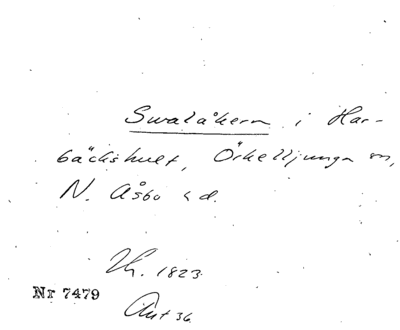 Svalåkern i Har-
bäckshult, Örkelljunga sn,
N. Åsbo hd.
Th. 1823
Nr 7479
Aut 36